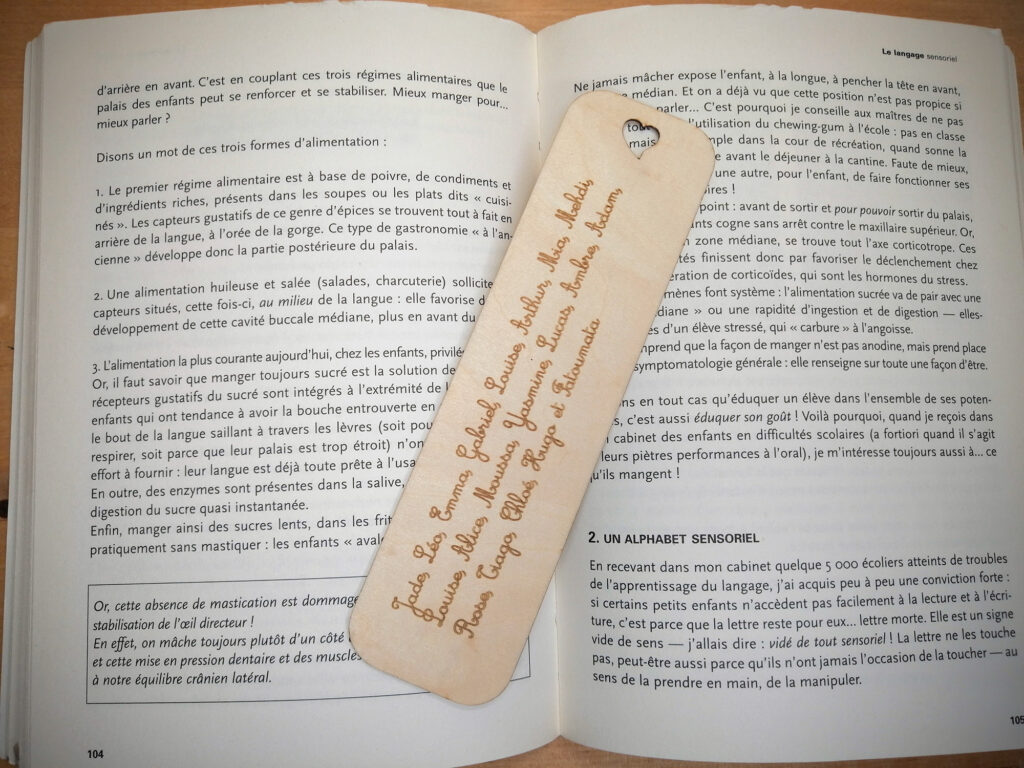 d'arrière en avant. C'est en couplant ces trois régimes alimentaires que le
palais des enfants peut se renforcer et se stabiliser. Mieux manger pour...
mieux parler ?
Disons un mot de ces trois formes d'alimentation :
1. Le premier régime alimentaire est à base de poivre, de condiments et
d'ingrédients riches, présents dans les soupes ou les plats dits « cuisi-
nés ». Les capteurs gustatifs de ce genre d'épices se trouvent tout à fait en
arrière de la langue, à l'orée de la gorge. Ce type de gastronomie « à l'an-
cienne » développe donc la partie postérieure du palais.
2. Une alimentation huileuse et salée (salades, charcuterie) sollicite
capteurs situés, cette fois-ci, au milieu de la langue : elle favorise
développement de cette cavité buccale médiane, plus en avant du
3. L'alimentation la plus courante aujourd'hui, chez les enfants,
Or, il faut savoir que manger toujours sucré est la solution de
récepteurs gustatifs du sucré sont intégrés à l'extrémité de
enfants qui ont tendance à avoir la bouche entrouverte en
le bout de la langue saillant à travers les lèvres (soit
respirer, soit parce que leur palais est trop étroit)
effort à fournir : leur langue est déjà toute prête à
En outre, des enzymes sont présentes dans la salive,
digestion du sucre quasi instantanée.
Enfin, manger ainsi des sucres lents, dans les
pratiquement sans mastiquer : les enfants
Or, cette absence de mastication est
stabilisation de l'œil directeur !
En effet, on mâche toujours plutôt d'un côté
et cette mise en pression dentaire et des muscles
à notre équilibre crânien latéral.
104
Jade, Léo, Emma, Gabriel, Louise, Arthur, Mia, Mehdi,
Louise, Alice, Moussa, Yasmine, Lucas, Ambre, Adam,
Rose, Tiago, Chloé, Hugo et Fatoumata
Le langage sensoriel
Ne jamais mâcher expose l'enfant, à la longue, à pencher la tête en avant,
médian. Et on a déjà vu que cette position n'est pas propice si
parler... C'est pourquoi je conseille aux maîtres de ne pas
tout l'utilisation du chewing-gum à l'école : pas en classe
mais dans la cour de récréation, quand sonne la
avant le déjeuner à la cantine. Faute de mieux,
une autre, pour l'enfant, de faire fonctionner ses
!
point : avant de sortir et pour pouvoir sortir du palais,
cogne sans arrêt contre le maxillaire supérieur. Or,
zone médiane, se trouve tout l'axe corticotrope. Ces
finissent donc par favoriser le déclenchement chez
de corticoïdes, qui sont les hormones du stress.
font système : l'alimentation sucrée va de pair avec une
» ou une rapidité d'ingestion et de digestion — elles-
d'un élève stressé, qui « carbure » à l'angoisse.
que la façon de manger n'est pas anodine, mais prend place
symptomatologie générale : elle renseigne sur toute une façon d'être.
en tout cas qu'éduquer un élève dans l'ensemble de ses poten-
c'est aussi éduquer son goût ! Voilà pourquoi, quand je reçois dans
cabinet des enfants en difficultés scolaires (a fortiori quand il s'agit
leurs piètres performances à l'oral), je m'intéresse toujours aussi à... ce
qu'ils mangent !
2. UN ALPHABET SENSORIEL
En recevant dans mon cabinet quelque 5 000 écoliers atteints de troubles
de l'apprentissage du langage, j'ai acquis peu à peu une conviction forte :
si certains petits enfants n'accèdent pas facilement à la lecture et à l'écri-
ture, c'est parce que la lettre reste pour eux... lettre morte. Elle est un signe
vide de sens — j'allais dire : vidé de tout sensoriel ! La lettre ne les touche
pas, peut-être aussi parce qu'ils n'ont jamais l'occasion de la toucher — au
sens de la prendre en main, de la manipuler.
105